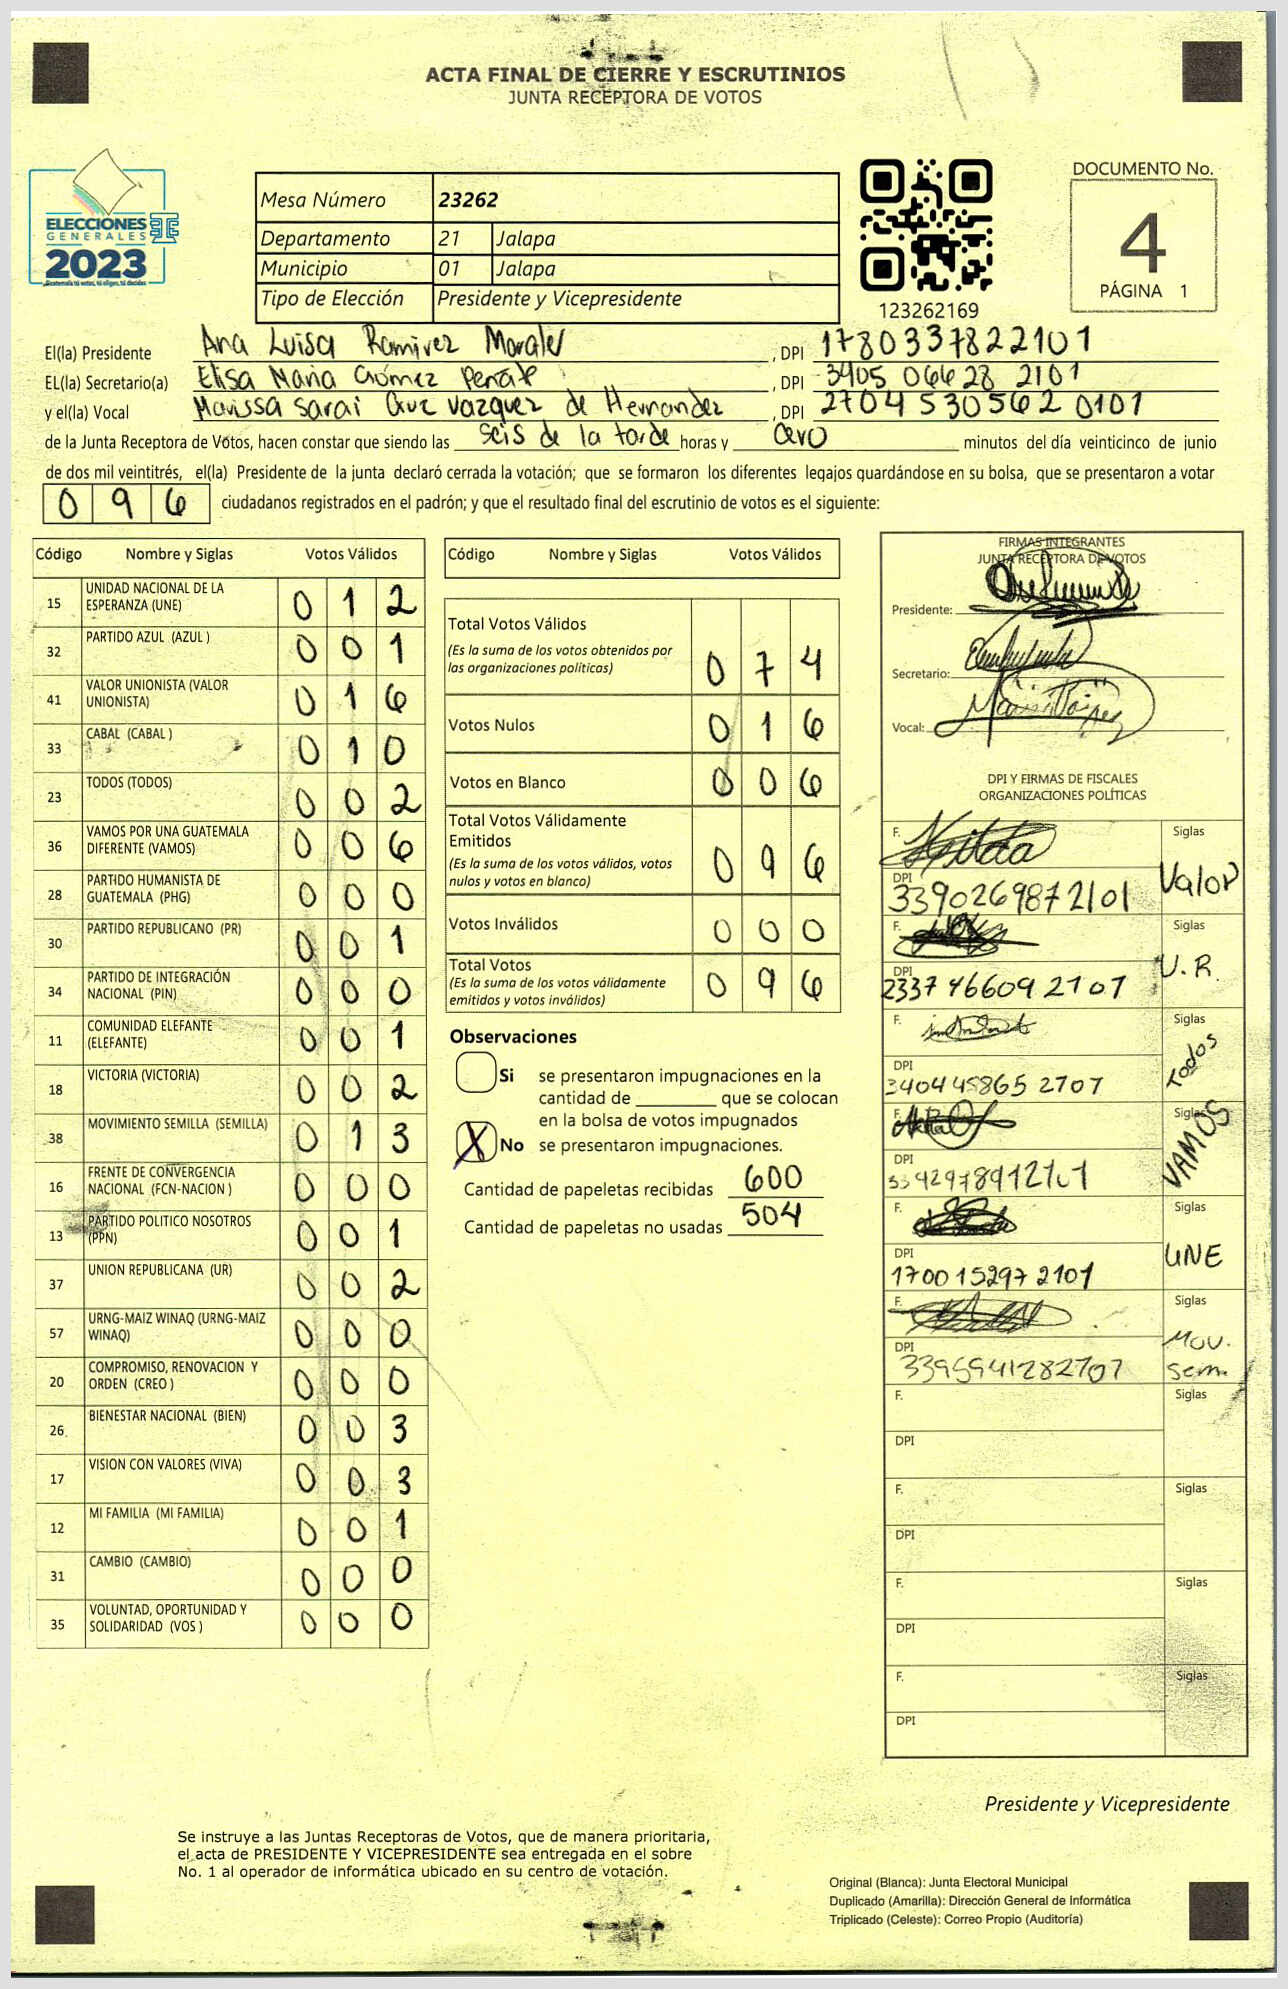 ACTA FINAL DE CIERRE Y ESCRUTINIOS
JUNTA RECEPTORA DE VOTOS
ELECCIONES
GENERALES
2023
Guatemala tú votas, tú eliges, tú decides
Mesa Número 23262
Departamento 21 Jalapa
Municipio 01 Jalapa
Tipo de Elección Presidente y Vicepresidente
123262169
DOCUMENTO No.
4
PÁGINA 1
El(la) Presidente Ana Luisa Ramirez Morales, DPI 1780337822101
EL(la) Secretario(a) Elisa Maria Gómez Peñate, DPI 3405 06628 2101
y el(la) Vocal Marissa Sarai Cruz Vazquez de Hernandez, DPI 2704 530562 0101
de la Junta Receptora de Votos, hacen constar que siendo las seis de la tarde horas y cero minutos del día veinticinco de junio
de dos mil veintitrés, el(la) Presidente de la junta declaró cerrada la votación; que se formaron los diferentes legajos guardándose en su bolsa, que se presentaron a votar
096 ciudadanos registrados en el padrón; y que el resultado final del escrutinio de votos es el siguiente:
Código Nombre y Siglas Votos Válidos
15 UNIDAD NACIONAL DE LA ESPERANZA (UNE) 0 1 2
32 PARTIDO AZUL (AZUL ) 0 0 1
41 VALOR UNIONISTA (VALOR UNIONISTA) 0 1 6
33 CABAL (CABAL ) 0 1 0
23 TODOS (TODOS) 0 0 2
36 VAMOS POR UNA GUATEMALA DIFERENTE (VAMOS) 0 0 6
28 PARTIDO HUMANISTA DE GUATEMALA (PHG) 0 0 0
30 PARTIDO REPUBLICANO (PR) 0 0 1
34 PARTIDO DE INTEGRACIÓN NACIONAL (PIN) 0 0 0
11 COMUNIDAD ELEFANTE (ELEFANTE) 0 0 1
18 VICTORIA (VICTORIA) 0 0 2
38 MOVIMIENTO SEMILLA (SEMILLA) 0 1 3
16 FRENTE DE CONVERGENCIA NACIONAL (FCN-NACION ) 0 0 0
13 PARTIDO POLITICO NOSOTROS (PPN) 0 0 1
37 UNION REPUBLICANA (UR) 0 0 2
57 URNG-MAIZ WINAQ (URNG-MAIZ WINAQ) 0 0 0
20 COMPROMISO, RENOVACION Y ORDEN (CREO ) 0 0 0
26 BIENESTAR NACIONAL (BIEN) 0 0 3
17 VISION CON VALORES (VIVA) 0 0 3
12 MI FAMILIA (MI FAMILIA) 0 0 1
31 CAMBIO (CAMBIO) 0 0 0
35 VOLUNTAD, OPORTUNIDAD Y SOLIDARIDAD (VOS ) 0 0 0
Código Nombre y Siglas Votos Válidos
Total Votos Válidos
(Es la suma de los votos obtenidos por
las organizaciones políticas) 0 7 4
Votos Nulos 0 1 6
Votos en Blanco 0 0 6
Total Votos Válidamente
Emitidos
(Es la suma de los votos válidos, votos
nulos y votos en blanco) 0 9 6
Votos Inválidos 0 0 0
Total Votos
(Es la suma de los votos válidamente
emitidos y votos inválidos) 0 9 6
Observaciones
Si se presentaron impugnaciones en la
cantidad de ________ que se colocan
en la bolsa de votos impugnados
X No se presentaron impugnaciones.
Cantidad de papeletas recibidas 600
Cantidad de papeletas no usadas 504
FIRMAS INTEGRANTES
JUNTA RECEPTORA DE VOTOS
Presidente:
Secretario:
Vocal:
DPI Y FIRMAS DE FISCALES
ORGANIZACIONES POLÍTICAS
F. Siglas
DPI 3390269872101 Valor
F. Siglas
DPI 2337 46609 2107 U.R.
F. Siglas
DPI 340445865 2707 Todos
F. Siglas
DPI 3392978912101 VAMOS
F. Siglas
DPI 1700 15297 2101 UNE
F. Siglas
DPI 3395941282707 Mov. Sem.
F. Siglas
DPI
F. Siglas
DPI
F. Siglas
DPI
F. Siglas
DPI
Presidente y Vicepresidente
Se instruye a las Juntas Receptoras de Votos, que de manera prioritaria,
el acta de PRESIDENTE Y VICEPRESIDENTE sea entregada en el sobre
No. 1 al operador de informática ubicado en su centro de votación.
Original (Blanca): Junta Electoral Municipal
Duplicado (Amarilla): Dirección General de Informática
Triplicado (Celeste): Correo Propio (Auditoría)